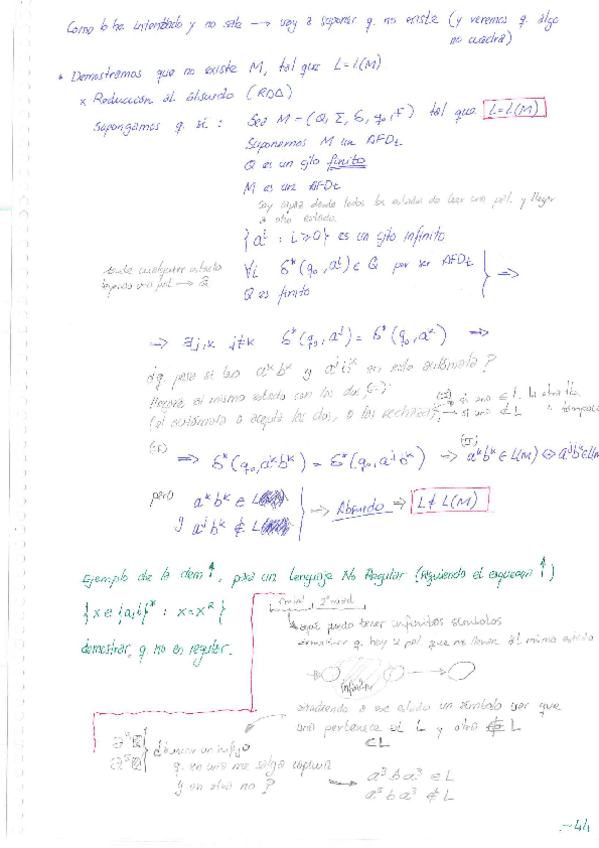 Como lo he intentado y no sale → voy a suponer q. no existe (y veremos q. algo
no cuadra)
• Demostramos que no existe M, tal que L = L(M)
x Reducción al Absurdo (RDA)
Supongamos q. sí : Sea M = (Q, Σ, δ, q₀, F) tal que L = L(M)
Suponemos M un AFDt
Q es un cjto finito
M es un AFDt
Soy capaz desde todos los estados de leer una pal. y llegar
a otro estado.
{aⁱ : i ≥ 0} es un cjto infinito
desde cualquier estado
∀i δ*(q₀, aⁱ) ∈ Q por ser AFDt ⟹
Q es finito
→ ∃j,k j≠k δ*(q₀, aʲ) = δ*(q₀, aᵏ) ⟹
¿q. pasa si leo aᵏbᵏ y aʲbᵏ en este autómata?
llegaré al mismo estado con los dos
(el autómata o acepta los dos, o los rechaza)
⟹ δ*(q₀, aᵏbᵏ) = δ*(q₀, aʲbᵏ) → aᵏbᵏ ∈ L(M) ⟺ aʲbᵏ ∈ L(M)
pero aᵏbᵏ ∈ L
y aʲbᵏ ∉ L → Absurdo ⟹ L ≠ L(M)
Ejemplo de la dem↑, para un lenguaje No Regular (siguiendo el esquema ↑)
{x ∈ {a,b}* : x = xᴿ}
demostrar q. no es regular.
1ª mitad 2ª mitad
aquí puedo tener infinitos símbolos
demostrar q. hay 2 pal. que me llevan al mismo estado
infinito
añadiendo a ese estado un símbolo ver que
una pertenece al L y otra ∉ L
∈L
a³
a⁵
buscar un sufijo
q. en una me salga capicúa
y en otra no?
→ a³ba³ ∈ L
a⁵ba³ ∉ L
-44